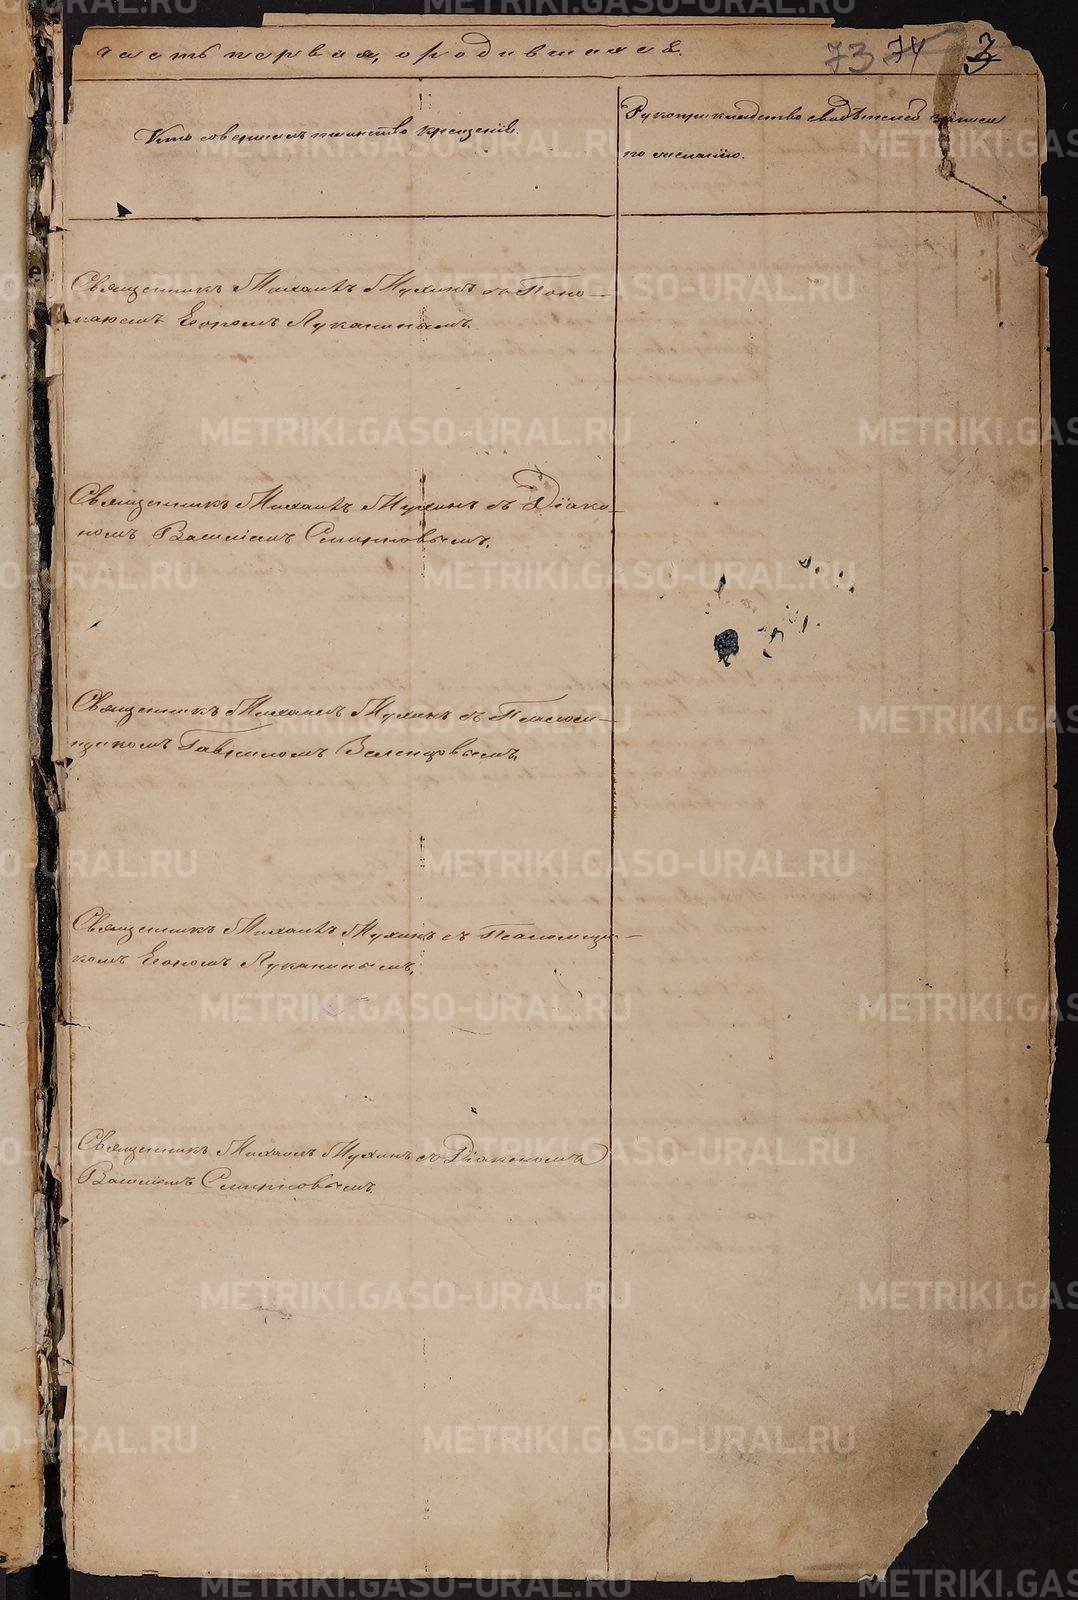 часть первая, о родившихся.
73 74 3
Кто совершалъ таинство крещенія.
Рукоприкладство свидѣтелей записи
по желанію.
Священникъ Михаилъ Мухинъ съ Поно-
маремъ Егоромъ Луканинымъ.
Священникъ Михаилъ Мухинъ съ Діако-
номъ Василіемъ Смирновымъ.
Священникъ Михаилъ Мухинъ съ Псаломщ-
щикомъ Гавріиломъ
Священникъ Михаилъ Мухинъ съ Псаломщи-
комъ Егоромъ Луканинымъ.
Священникъ Михаилъ Мухинъ съ Діакономъ
Василіемъ Смирновымъ.
METRIKI.GASO-URAL.RU